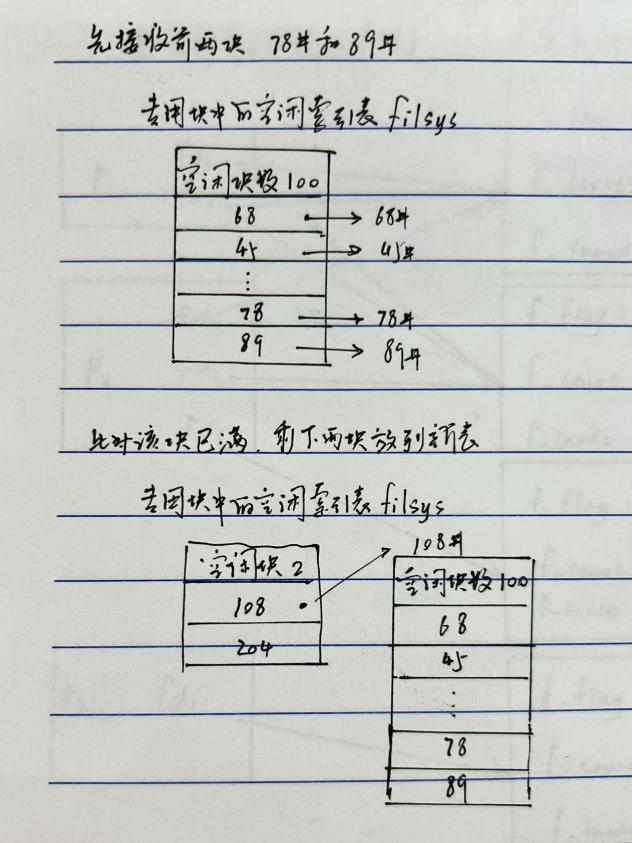 先接收前两块 78# 和 89#
专用块中的空闲索引表 filsys
空闲块数 100
68 → 68#
45 → 45#
⋮
78 → 78#
89 → 89#
此时该块已满，剩下两块放到新表
专用块中的空闲索引表 filsys
空闲块 2
108
204
108#
空闲块数 100
68
45
⋮
78
89